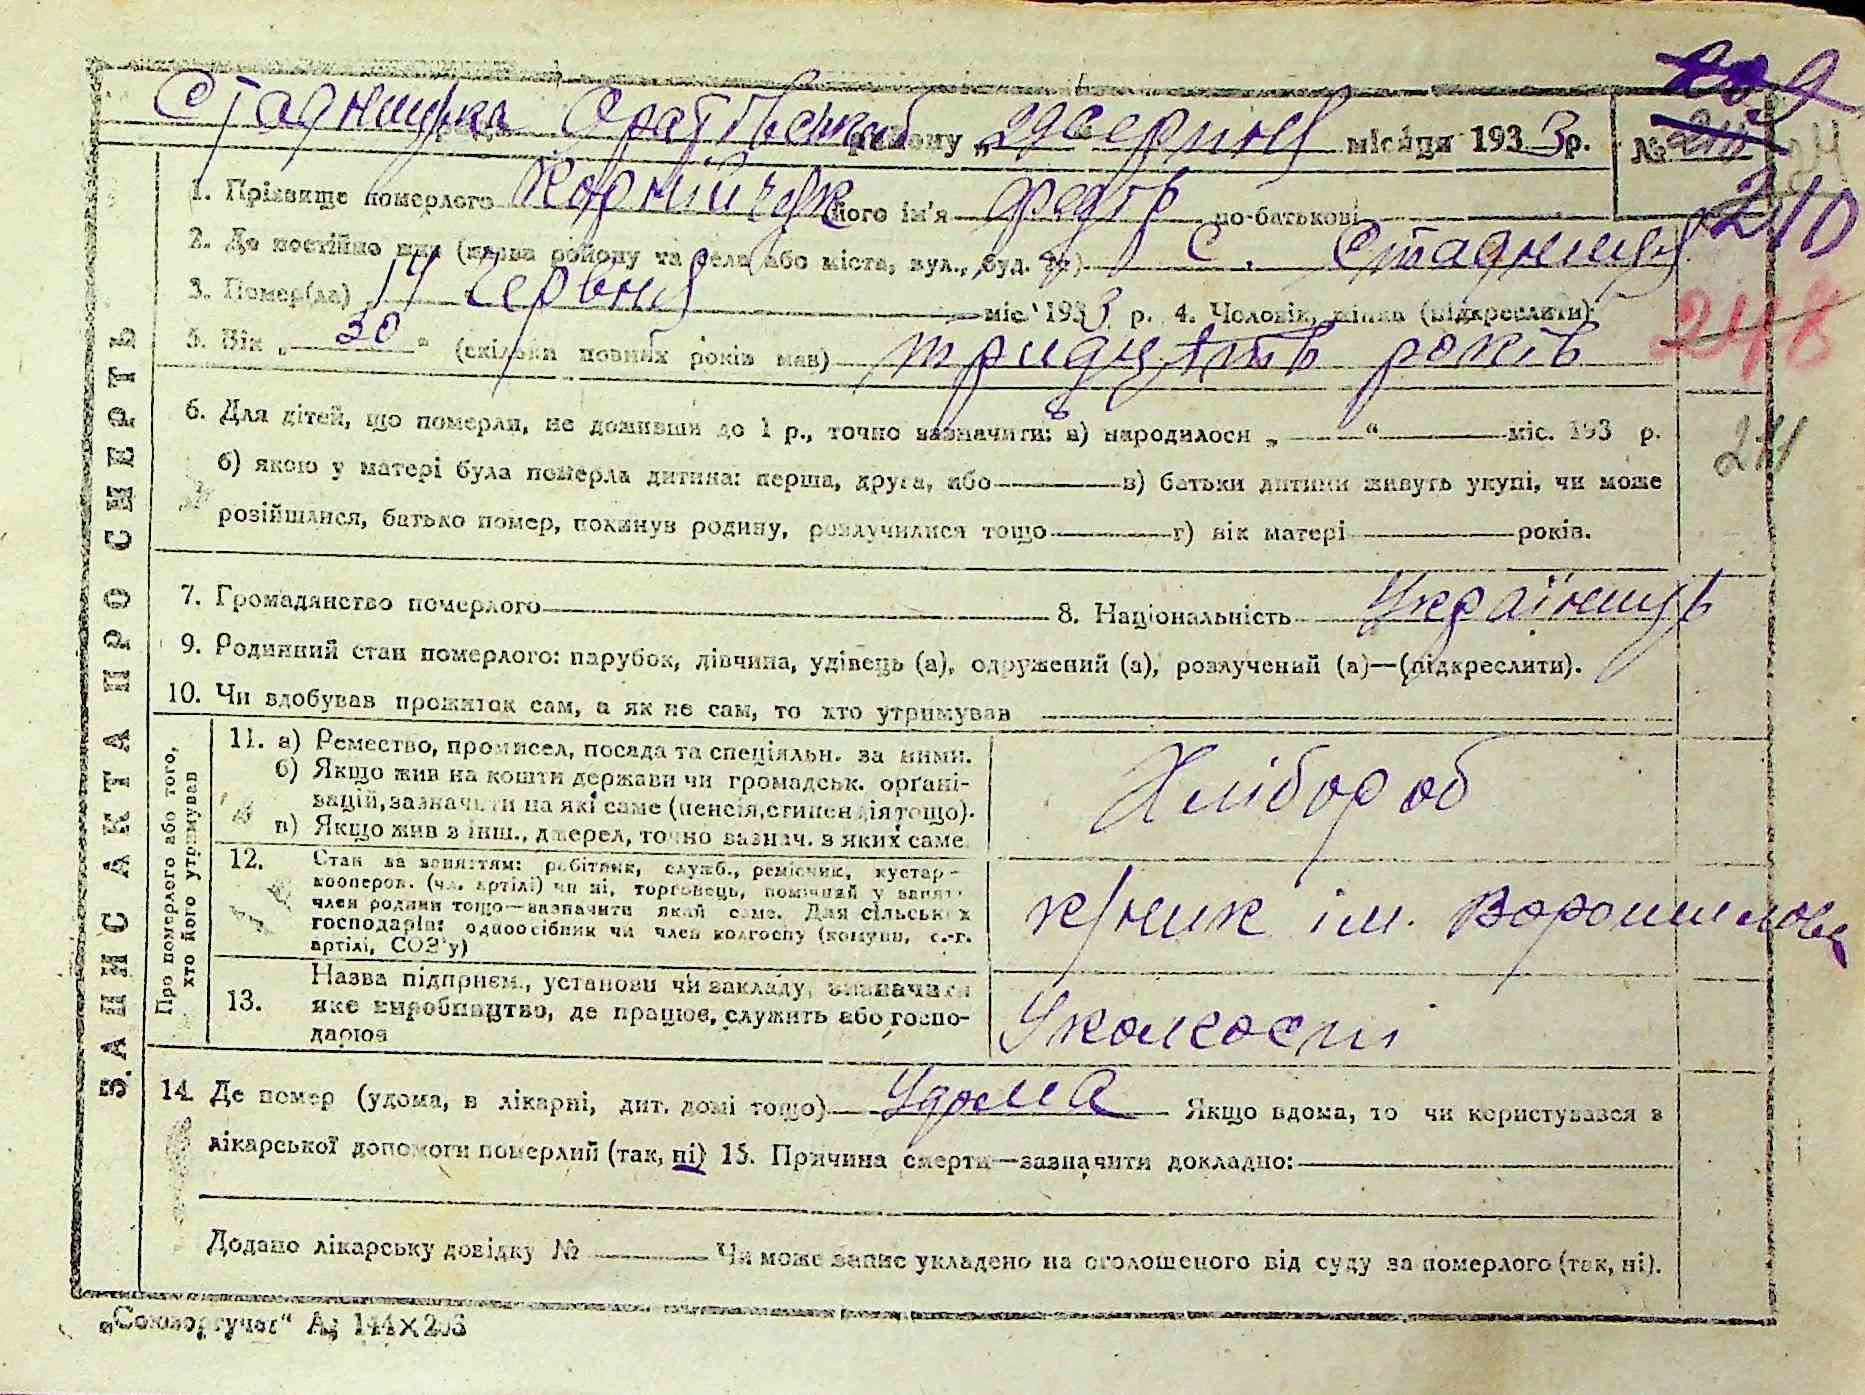 Стадницька рада Оратівський району „29" серпня місяця 1933 р. № 210
210
1. Прізвище померлого Корнійчук його ім'я Федір по-батькові
2. Де постійно жив (назва району та села або міста, вул., буд. №) с. Стадниця
248
3. Помер(ла) 14 червня міс. 1933 р. 4. Чоловік, жінка (підкреслити)
5. Вік „30" (скільки повних років мав) тридцять років
6. Для дітей, що померли, не доживши до 1 р., точно зазначити: а) народилося „ " міс. 193 р.
211
б) якою у матері була померла дитина: перша, друга, або в) батьки дитини живуть укупі, чи може
розійшлися, батько помер, покинув родину, розлучилися тощо г) вік матері років.
7. Громадянство померлого 8. Національність Українець
9. Родинний стан померлого: парубок, дівчина, удівець (а), одружений (а), розлучений (а)—(підкреслити).
10. Чи здобував прожиток сам, а як не сам, то хто утримував
ЗАПИС АКТА ПРО СМЕРТЬ
Про померлого або того, хто його утримував
11. а) Ремество, промисел, посада та спеціяльн. за ними.
б) Якщо жив на кошти держави чи громадськ. органі-
зацій, зазначити на які саме (пенсія, стипендія тощо).
в) Якщо жив з інш., джерел, точно вазнач. з яких саме
Хлібороб
12. Стан за заняттям: робітник, служб., ремісник, кустар-
кооперов. (чл. артілі) чи ні, торговець, помічний у занят.
член родини тощо—вазначити який саме. Для сільських
господарів: одноосібник чи член колгоспу (комуни, с.-г.
артілі, СОЗ'у)
к/ник ім. Ворошилова
13. Назва підприєм., установи чи закладу, визначити
яке виробництво, де працює, служить або госпо-
дарює
У колгоспі
14. Де помер (удома, в лікарні, дит. домі тощо) Удома Якщо вдома, то чи користувався з
лікарської допомоги померлий (так, ні) 15. Причина смерти—зазначити докладно:
Додано лікарську довідку № Чи може запис укладено на оголошеного від суду за померлого (так, ні).
„Союзоргучет" А₅ 144×203